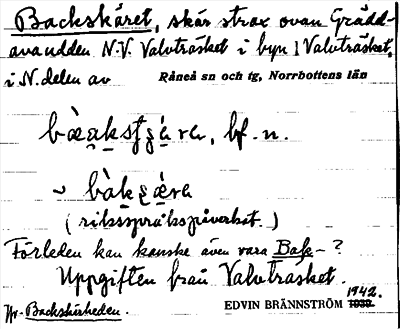 Backskäret, skär strax ovan Grädd-
avaudden N.V. Valvträsket i byn Valvträsket,
i N.delen av Råneå sn och tg, Norrbottens län
bf. n.
(riksspråkspåverkat.)
Förleden kan kanske även vara Bak-?
Uppgiften från Valvträsket.
1942.
Jfr. Backskärheden. EDVIN BRÄNNSTRÖM 1939.